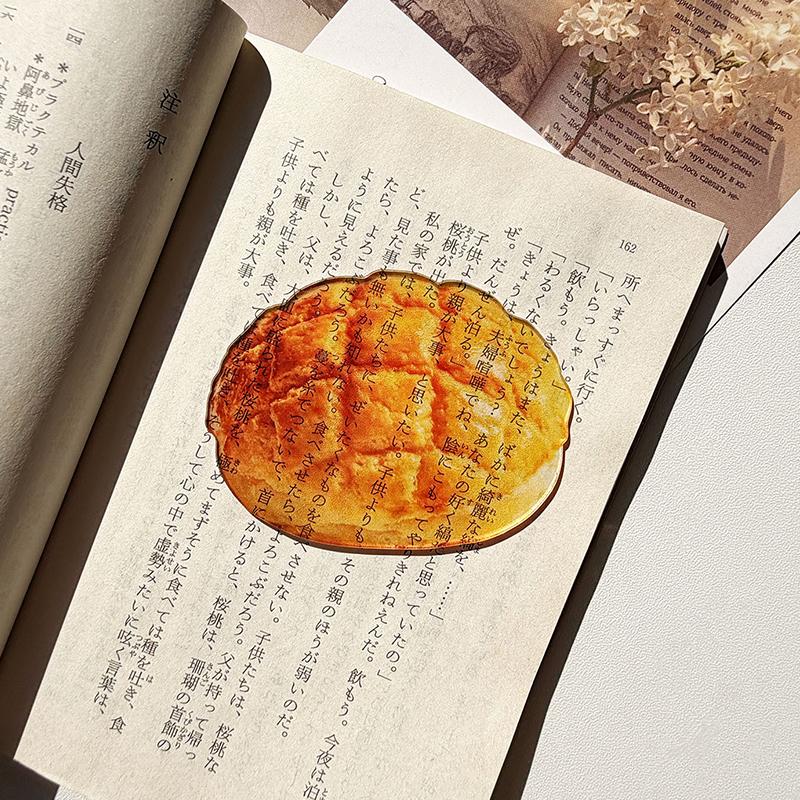 162
所へまっすぐに行く。
「いらっしゃい。」
「飲もう。きょうはまた、ばかに綺麗な縞を、……」
「わるくないでしょう? あなたの好く縞だと思っていたの。」
「きょうは、夫婦喧嘩でね、陰にこもってやりきれねえんだ。飲もう。今夜は泊
ぜ。だんぜん泊る。」
子供より親が大事、と思いたい。子供よりも、その親のほうが弱いのだ。
桜桃が出た。
私の家では、子供たちに、ぜいたくなものを食べさせない。子供たちは、桜桃な
ど、見た事も無いかも知れない。食べさせたら、よろこぶだろう。父が持って帰っ
たら、よろこぶだろう。蔓を糸でつないで、首にかけると、桜桃は、珊瑚の首飾の
ように見えるだろう。
しかし、父は、大皿に盛られた桜桃を、極めてまずそうに食べては種を吐き、食
べては種を吐き、食べては種を吐き、そうして心の中で虚勢みたいに呟く言葉は、
子供よりも親が大事。
注釈
人間失格
一四 *プラクテカル
*阿鼻地獄
一六